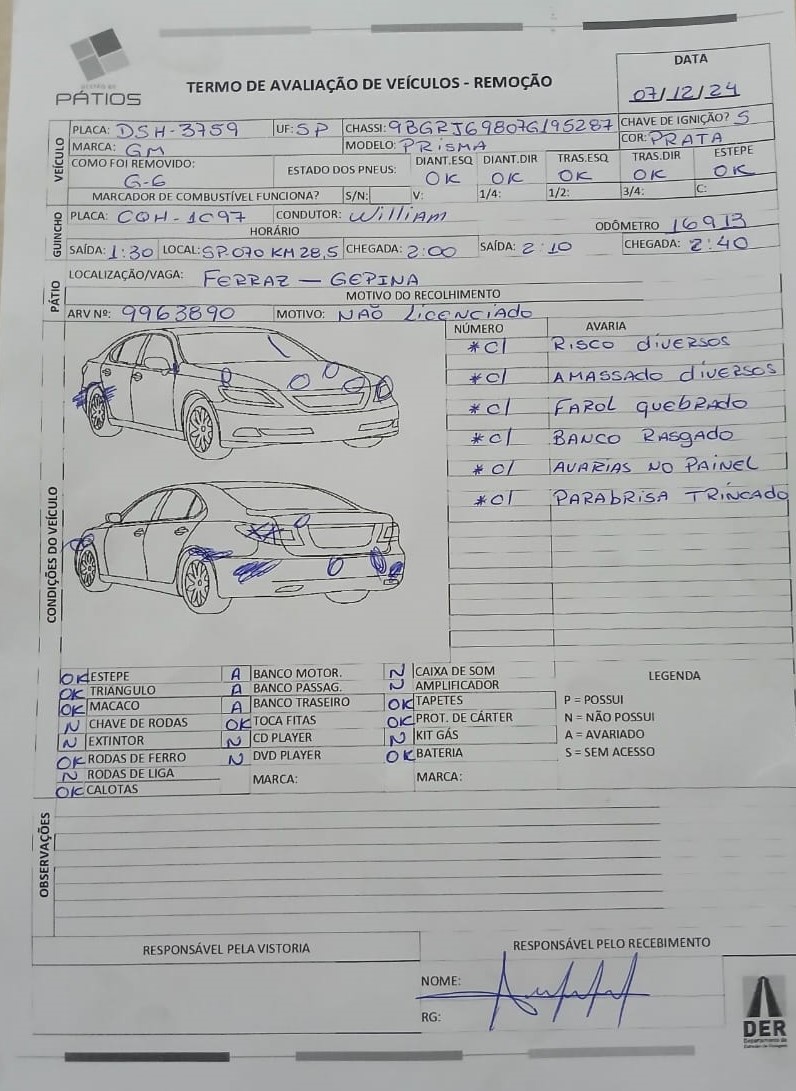 PÁTIOS
TERMO DE AVALIAÇÃO DE VEÍCULOS - REMOÇÃO
DATA
07/12/24
VEÍCULO
PLACA: DSH-3759 UF: SP CHASSI: 9BGRJ69807G195287 CHAVE DE IGNIÇÃO? S
MARCA: GM MODELO: PRISMA COR: PRATA
COMO FOI REMOVIDO: G-6 ESTADO DOS PNEUS: DIANT.ESQ OK DIANT.DIR OK TRAS.ESQ OK TRAS.DIR OK ESTEPE OK
MARCADOR DE COMBUSTÍVEL FUNCIONA? S/N: V: 1/4: 1/2: 3/4: C:
GUINCHO
PLACA: CQH-1C97 CONDUTOR: William ODÔMETRO 16913
HORÁRIO
SAÍDA: 1:30 LOCAL: SP.070 KM 28,5 CHEGADA: 2:00 SAÍDA: 2:10 CHEGADA: 2:40
PÁTIO
LOCALIZAÇÃO/VAGA: FERRAZ - GEPINA
MOTIVO DO RECOLHIMENTO
ARV Nº: 9963890 MOTIVO: NAO LICENCIADO
CONDIÇÕES DO VEÍCULO
NÚMERO AVARIA
*C/ RISCO diVERSOS
*C/ AMASSADO diVERSOS
*C/ FAROL QUEBRADO
*C/ BANCO RASGADO
*C/ AVARIAS NO PAINEL
*C/ PARABRISA TRINCADO
OK ESTEPE A BANCO MOTOR. N CAIXA DE SOM LEGENDA
OK TRIANGULO A BANCO PASSAG. N AMPLIFICADOR
OK MACACO A BANCO TRASEIRO OK TAPETES P = POSSUI
N CHAVE DE RODAS OK TOCA FITAS OK PROT. DE CÁRTER N = NÃO POSSUI
N EXTINTOR N CD PLAYER N KIT GÁS A = AVARIADO
OK RODAS DE FERRO N DVD PLAYER OK BATERIA S = SEM ACESSO
N RODAS DE LIGA MARCA: MARCA:
OK CALOTAS
OBSERVAÇÕES
RESPONSÁVEL PELA VISTORIA RESPONSÁVEL PELO RECEBIMENTO
NOME:
RG:
DER